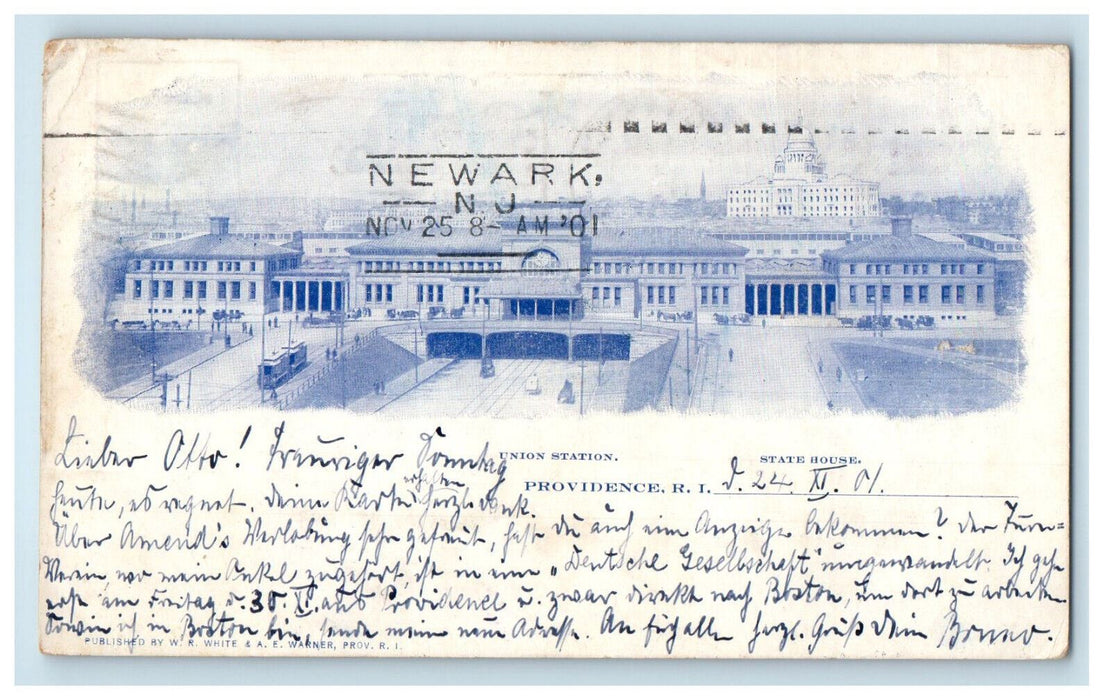 NEWARK,
N J
NOV 25 8- AM '01
UNION STATION.
STATE HOUSE.
PROVIDENCE, R. I. d. 24. XI. 01.
Lieber Otto! Trauriger Sonntag
heute, es regnet. Deine Karte erhalten herzl. Dank.
Über Amend's Verlobung sehr gefreut, hast Du auch eine Anzeige bekommen? Der Turn-
Verein, wo mein Onkel zugehört, ist in eine „Deutsche Gesellschaft" umgewandelt. Ich gehe
erst am Freitag d. 30. XI. aus Providence u. zwar direkt nach Boston, um dort zu arbeiten.
Sowie ich in Boston bin, sende meine neue Adresse. An Euch alle herzl. Gruß Dein Bruno.
PUBLISHED BY W. R. WHITE & A. E. WARNER, PROV. R. I.